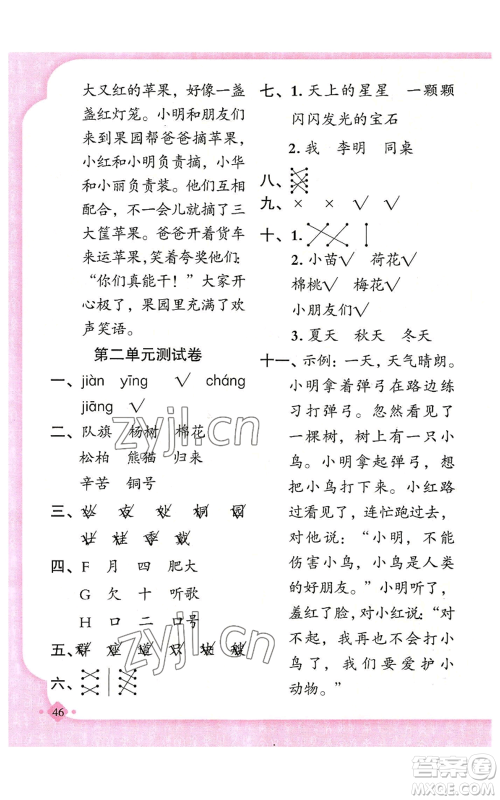 大又红的苹果，好像一盏
盏红灯笼。小明和朋友们
来到果园帮爸爸摘苹果，
小红和小明负责摘，小华
和小丽负责装。他们互相
配合，不一会儿就摘了三
大筐苹果。爸爸开着货车
来运苹果，笑着夸奖他们：
“你们真能干！”大家开
心极了，果园里充满了欢
声笑语。
第二单元测试卷
一、jiàn yīng √ cháng
jiāng √
二、队旗 杨树 棉花
松柏 熊猫 归来
辛苦 铜号
三、
四、F 月 四 肥大
G 欠 十 听歌
H 口 二 口号
五、
六、
46
七、1. 天上的星星 一颗颗
闪闪发光的宝石
2. 我 李明 同桌
八、
九、× × √ √
十、1.
2. 小苗√ 荷花√
棉桃√ 梅花√
小朋友们√
3. 夏天 秋天 冬天
十一、示例：一天，天气晴朗。
小明拿着弹弓，在乡间小
路上打弹弓。小明看见
一棵树，树上有一只小
鸟。小明拿起弹弓，把弹
弓对准了小鸟。小红路
过，连忙跑过来拦住他，
对他说：“小明，不能
伤害小鸟，小鸟是人类
的好朋友。”小明听了，
羞红了脸，对小红说：“对
不起，我再也不打小
鸟了，我们要爱护小
动物。”
zyjl.cn
zyjl.cn
答案圈
MXQE.COM